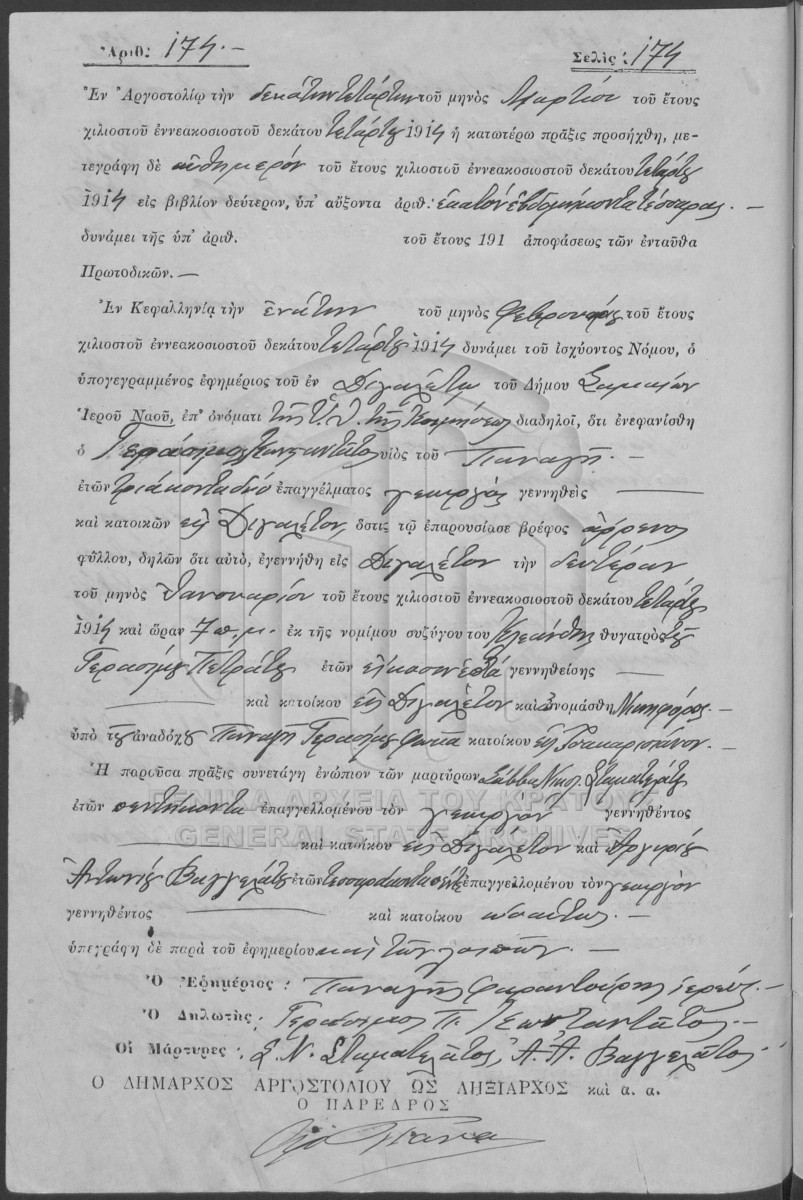 Ἀριθ: 174.— Σελὶς: 174
Ἐν Ἀργοστολίῳ τὴν δεκάτην τετάρτην τοῦ μηνὸς Μαρτίου τοῦ ἔτους
χιλιοστοῦ ἐννεακοσιοστοῦ δεκάτου τετάρτου 1914 ἡ κατωτέρω πρᾶξις προσήχθη, με-
τεγράφη δὲ αὐθημερὸν τοῦ ἔτους χιλιοστοῦ ἐννεακοσιοστοῦ δεκάτου τετάρτου
1914 εἰς βιβλίον δεύτερον, ὑπ' αὔξοντα ἀριθ.: ἑκατὸν ἑβδομήκοντα τέσσαρας.—
δυνάμει τῆς ὑπ' ἀριθ. τοῦ ἔτους 191 ἀποφάσεως τῶν ἐνταῦθα
Πρωτοδικῶν.—
Ἐν Κεφαλληνίᾳ τὴν ἐνάτην τοῦ μηνὸς Φεβρουαρίου τοῦ ἔτους
χιλιοστοῦ ἐννεακοσιοστοῦ δεκάτου τετάρτου 1914 δυνάμει τοῦ ἰσχύοντος Νόμου, ὁ
ὑπογεγραμμένος ἐφημέριος τοῦ ἐν Διγαλέτῳ τοῦ Δήμου Σαμαίων
Ἱεροῦ Ναοῦ, ἐπ' ὀνόματι τῆς Ὑ. Θ. τῆς Κοιμήσεως διαδηλοῖ, ὅτι ἐνεφανίσθη
ὁ Γεράσιμος Κωνσταντάτος υἱὸς τοῦ Παναγῆ.—
ἐτῶν τριάκοντα δύο ἐπαγγέλματος γεωργὸς γεννηθεὶς —
καὶ κατοικῶν εἰς Διγαλέτον, ὅστις τῷ ἐπαρουσίασε βρέφος ἄρρενος
φύλλου, δηλῶν ὅτι αὐτὸ, ἐγεννήθη εἰς Διγαλέτον τὴν δευτέραν
τοῦ μηνὸς Ἰανουαρίου τοῦ ἔτους χιλιοστοῦ ἐννεακοσιοστοῦ δεκάτου τετάρτου
1914 καὶ ὥραν 7 π.μ. ἐκ τῆς νομίμου συζύγου του Κλεάνθης θυγατρὸς τοῦ
Γερασίμου Πετράτου ἐτῶν εἴκοσιν ἑπτὰ γεννηθείσης —
— καὶ κατοίκου εἰς Διγαλέτον καὶ ὠνομάσθη Νικηφόρος.—
ὑπὸ τοῦ ἀναδόχου Παναγῆ Γερασίμου Φωκᾶ κατοίκου εἰς.—
Ἡ παροῦσα πρᾶξις συνετάγη ἐνώπιον τῶν μαρτύρων Σάββα Νικολ. Σταματελάτου
ἐτῶν πεντήκοντα ἐπαγγελλομένου τὸν γεωργὸν γεννηθέντος
— καὶ κατοίκου εἰς Διγαλέτον καὶ Ἀργυρίου
Ἀντωνίου Βαγγελάτου ἐτῶν τεσσαράκοντα πέντε ἐπαγγελλομένου τὸν γεωργὸν
γεννηθέντος — καὶ κατοίκου ὡσαύτως.—
ὑπεγράφη δὲ παρὰ τοῦ ἐφημερίου καὶ τῶν λοιπῶν.—
Ὁ Ἐφημέριος: Παναγῆς Φαραντούρης ἱερεύς.—
Ὁ Δηλωτὴς: Γεράσιμος Π. Κωνσταντάτος.—
Οἱ Μάρτυρες: Σ. Ν. Σταματελάτος, Ἀ. Ἀ. Βαγγελάτος
Ο ΔΗΜΑΡΧΟΣ ΑΡΓΟΣΤΟΛΙΟΥ ΩΣ ΛΗΞΙΑΡΧΟΣ καὶ α. α.
Ο ΠΑΡΕΔΡΟΣ
ΓΕΝΙΚΑ ΑΡΧΕΙΑ ΤΟΥ ΚΡΑΤΟΥΣ
GENERAL STATE ARCHIVES